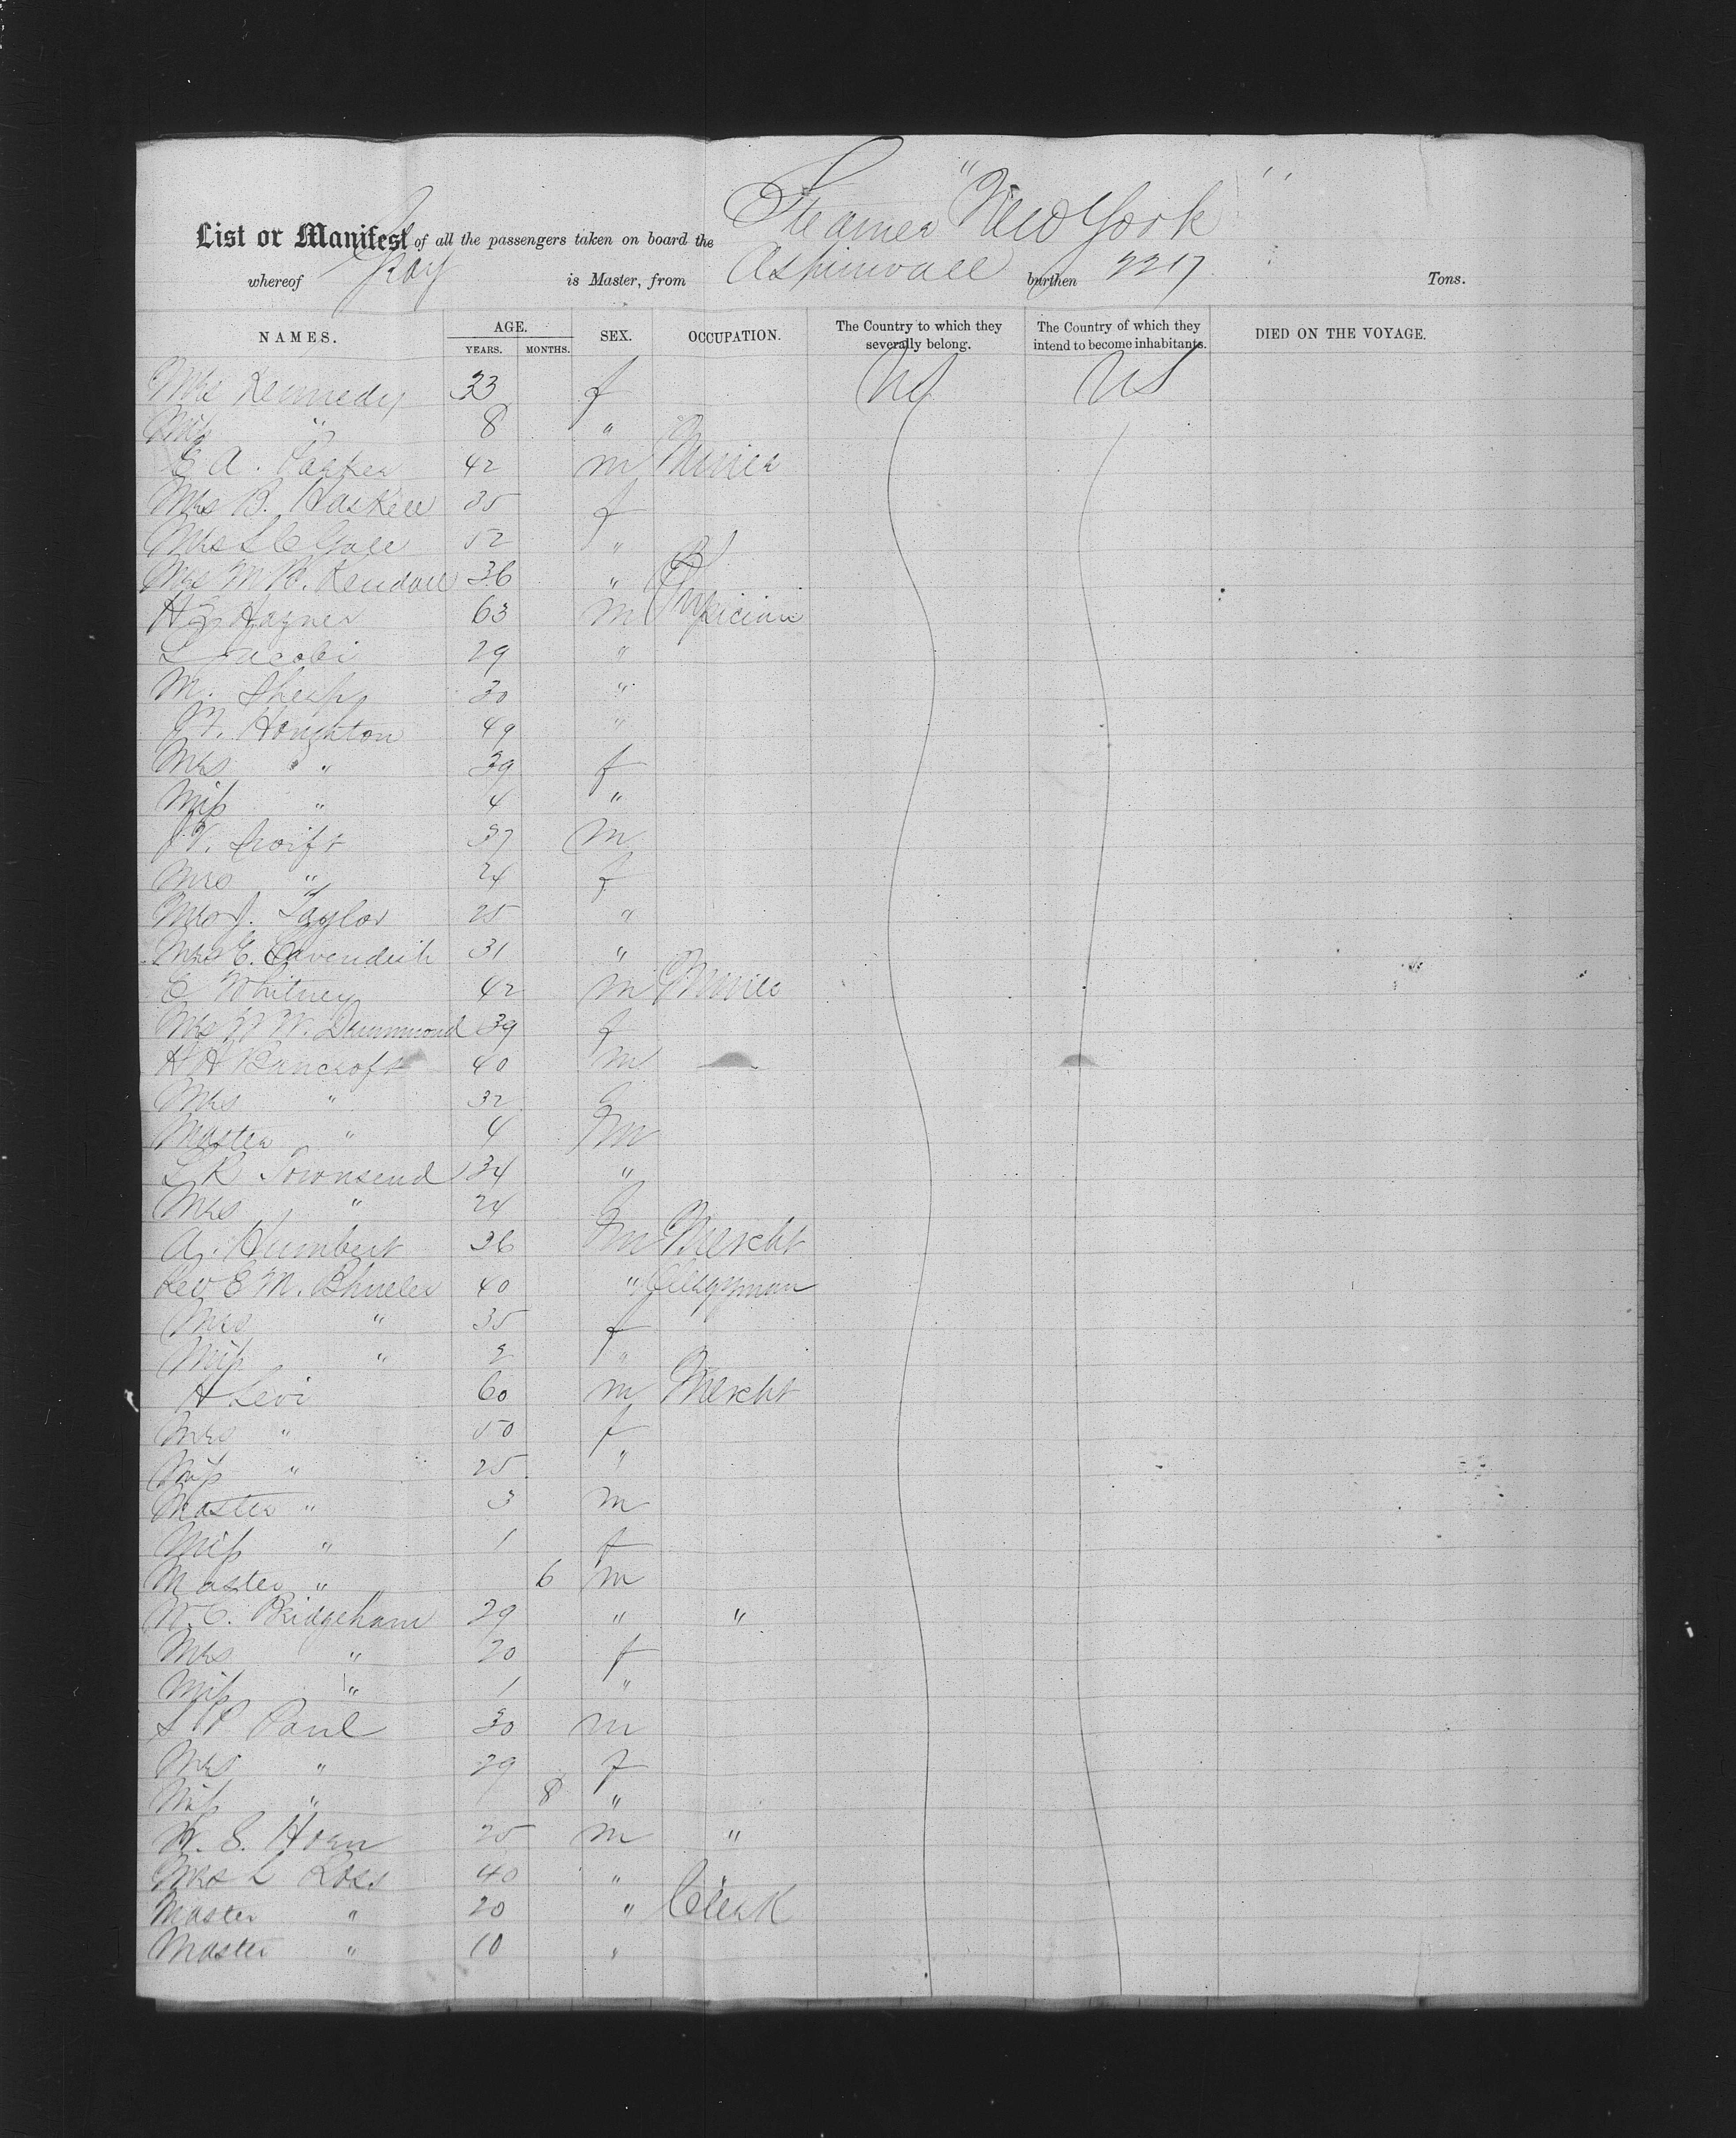 List or Manifest of all the passengers taken on board the Steamer "New York"
whereof Gray is Master, from Aspinwall burthen 2217 Tons.
NAMES. AGE. YEARS. MONTHS. SEX. OCCUPATION. The Country to which they severally belong. The Country of which they intend to become inhabitants. DIED ON THE VOYAGE.
Mrs Kennedy 33 f US US
Miss " 8 "
E A. Parker 42 m Miner
Mrs B. Haskell 35 f
Mrs S C Gale 52 "
Mrs M B. Kendall 36 "
Hagner 63 m Physician
L Jacobi 29 "
M. Sharp 30 "
Houghton 49 "
Mrs " " 39 f
Miss " 4 "
J V. Swift 37 m
Mrs " 24 f
Mrs J. Taylor 25 "
Mrs E. Cavendish 31 "
E Whitney 42 m Miner
Mrs Drummond 39 f
H H Bancroft 40 m
Mrs " 32 f
Master " 4 m
L R Townsend 34 "
Mrs " 24 f
A. Humbert 36 m Mercht
Rev E M. 40 " Clergyman
Mrs " 35 f
Miss " 2 "
H Levi 60 m Mercht
Mrs " 50 f
Miss " 25 "
Master " 3 m
Miss " 1 f
Master " 6 m
W. C. Bridgeham 29 " "
Mrs " 20 f
Miss " 1 "
S P Paul 30 m
Mrs " 29 f
Miss " 8 "
W. S. Horn 25 m "
Mrs L Ross 40 "
Master " 20 " Clerk
Master " 10 "